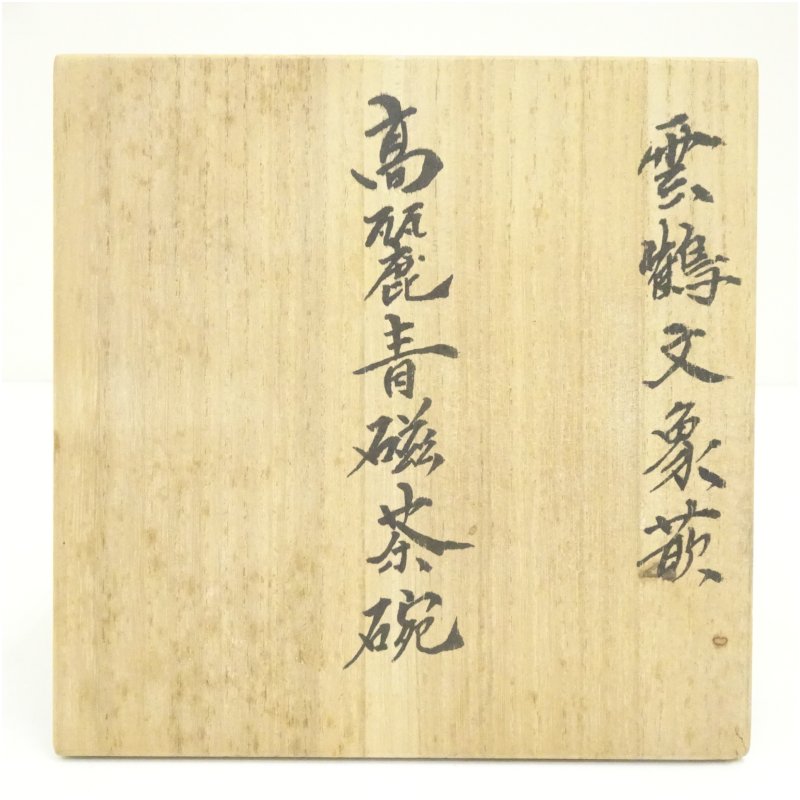 雲鶴文象嵌
高麗青磁茶碗